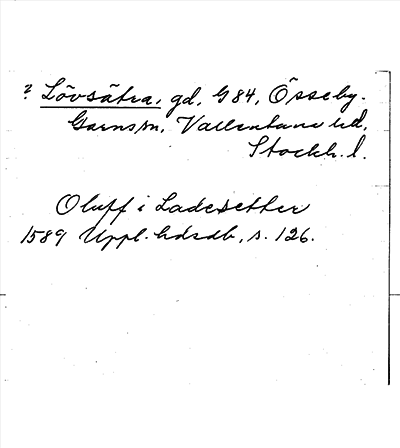 ? Lövsätra, gd, G 84, Össeby-
Garns sn, Vallentuna hd,
Stockh. l.
Oluff i Ladesetter
1589 Uppl. hdsdb, s. 126.